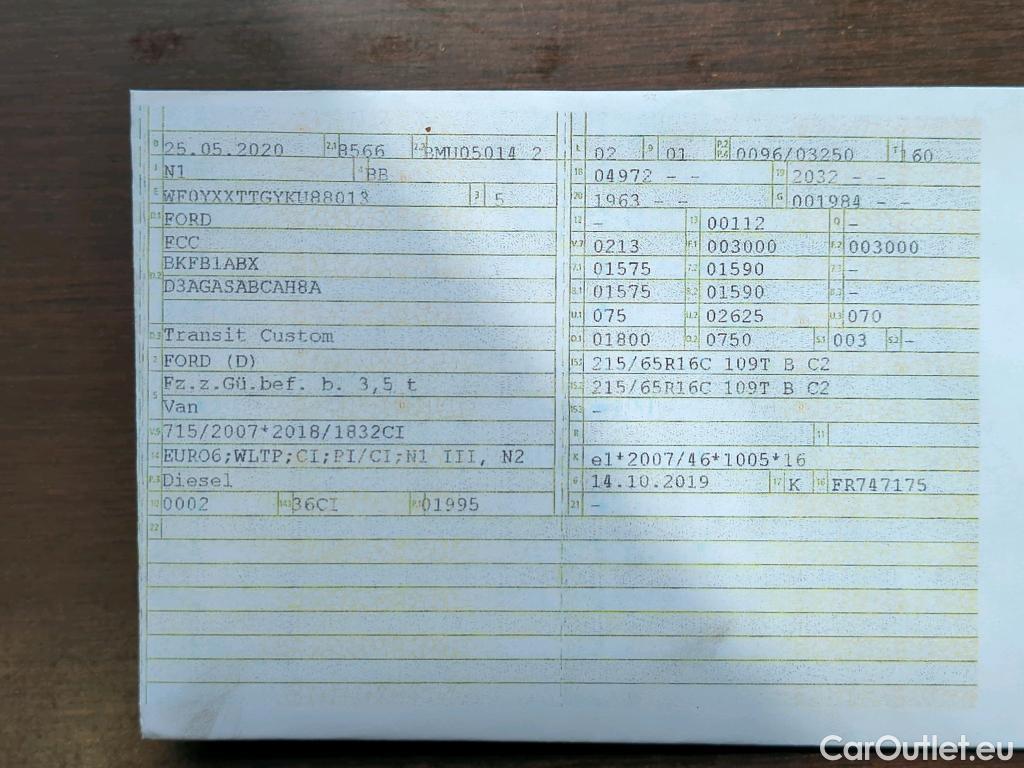 B 25.05.2020 2.1 8566 2.2 BMU05014 2
J N1 4 BB
E WF0YXXTTGYKU88013 3 5
D.1 FORD
D.2 FCC
BKFB1ABX
D3AGASABCAH8A
D.3 Transit Custom
2 FORD (D)
5 Fz.z.Gü.bef. b. 3,5 t
Van
V.9 715/2007*2018/1832CI
14 EURO6;WLTP;CI;PI/CI;N1 III, N2
P.3 Diesel
10 0002 14.1 36CI P.1 01995
22
L 02 9 01 P.2 P.4 0096/03250 T 160
18 04972 - - 19 2032 - -
20 1963 - - G 001984 - -
12 - 13 00112 Q -
V.7 0213 F.1 003000 F.2 003000
7.1 01575 7.2 01590 7.3 -
8.1 01575 8.2 01590 8.3 -
U.1 075 U.2 02625 U.3 070
O.1 01800 O.2 0750 S.1 003 S.2 -
15.1 215/65R16C 109T B C2
15.2 215/65R16C 109T B C2
15.3 -
R 11
K e1*2007/46*1005*16
6 14.10.2019 17 K 16 FR747175
21 -
CarOutlet.eu